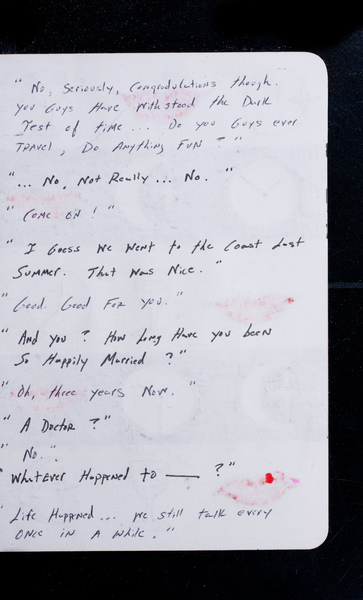 " No, Seriously, Congradulations though.
you Guys Have Withstood the Dark
Test of time... Do you Guys ever
Travel, Do Anything Fun ? "
"... No, Not Really... No. "
" Come on ! "
" I Guess we went to the Coast Last
Summer. That Was Nice. "
" Good. Good For you. "
" And you ? How Long Have you been
So Happily Married ? "
" Oh, three years Now. "
" A Doctor ? "
" No. "
" Whatever Happened to —— ? "
" Life Happened... we still talk every
once in A while. "